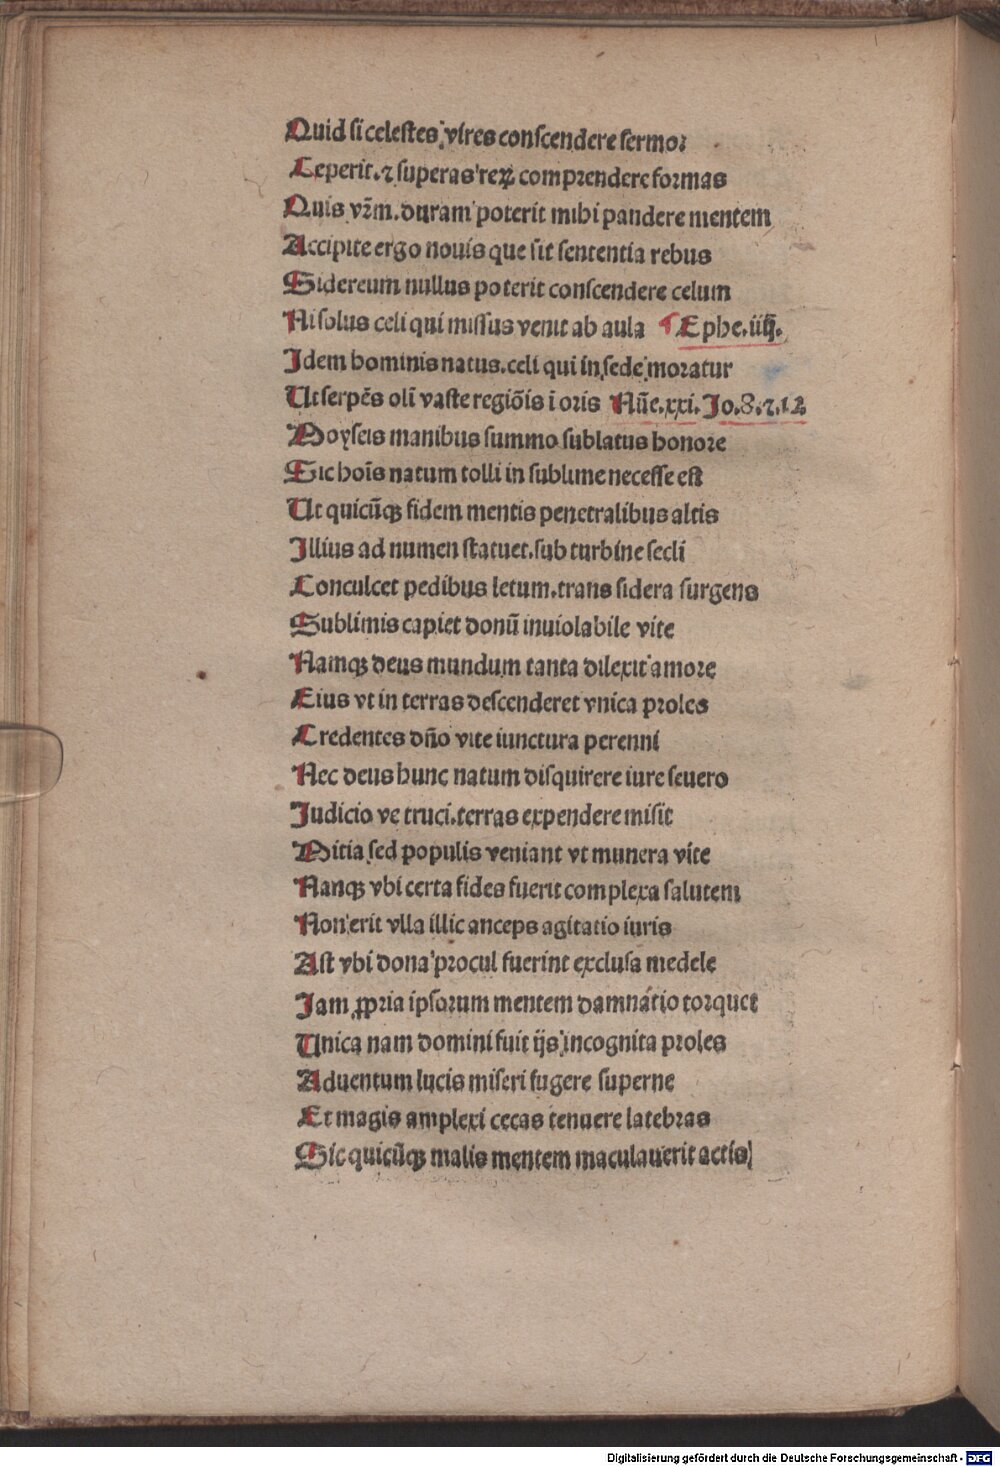 Quid si celestes vires conscendere sermo:
Ceperit. ⁊ superas reꝝ comprendere formas
Quis vr̃m. duram poterit mihi pandere mentem
Accipite ergo nouis que sit sententia rebus
Sidereum nullus poterit conscendere celum
Ni solus celi qui missus venit ab aula ¶ Ephe. iiij.
Idem hominis natus. celi qui in sede moratur
Ut serpẽs oli vaste regiõis i oris Nũe. xxi. Jo. 8. ⁊. 12
Moyseis manibus summo sublatus honore
Sic hoĩs natum tolli in sublime necesse est
Ut quicũqꝫ fidem mentis penetralibus altis
Illius ad numen statuet. sub turbine secli
Conculcet pedibus letum. trans sidera surgens
Sublimis capiet donũ inuiolabile vite
Namqꝫ deus mundum tanta dilexit amore
Eius vt in terras descenderet vnica proles
Credentes dño vite iunctura perenni
Nec deus hunc natum disquirere iure seuero
Judicio ve truci. terras expendere misit
Mitia sed populis veniant vt munera vite
Nanqꝫ vbi certa fides fuerit complexa salutem
Non erit vlla illic anceps agitatio iuris
Ast vbi dona procul fuerint exclusa medele
Jam ꝓpria ipsorum mentem damnatio torquet
Unica nam domini fuit ijs incognita proles
Aduentum lucis miseri fugere superne
Et magis amplexi cecas tenuere latebras
Sic quicũqꝫ malis mentem maculauerit actis
Digitalisierung gefördert durch die Deutsche Forschungsgemeinschaft - DFG